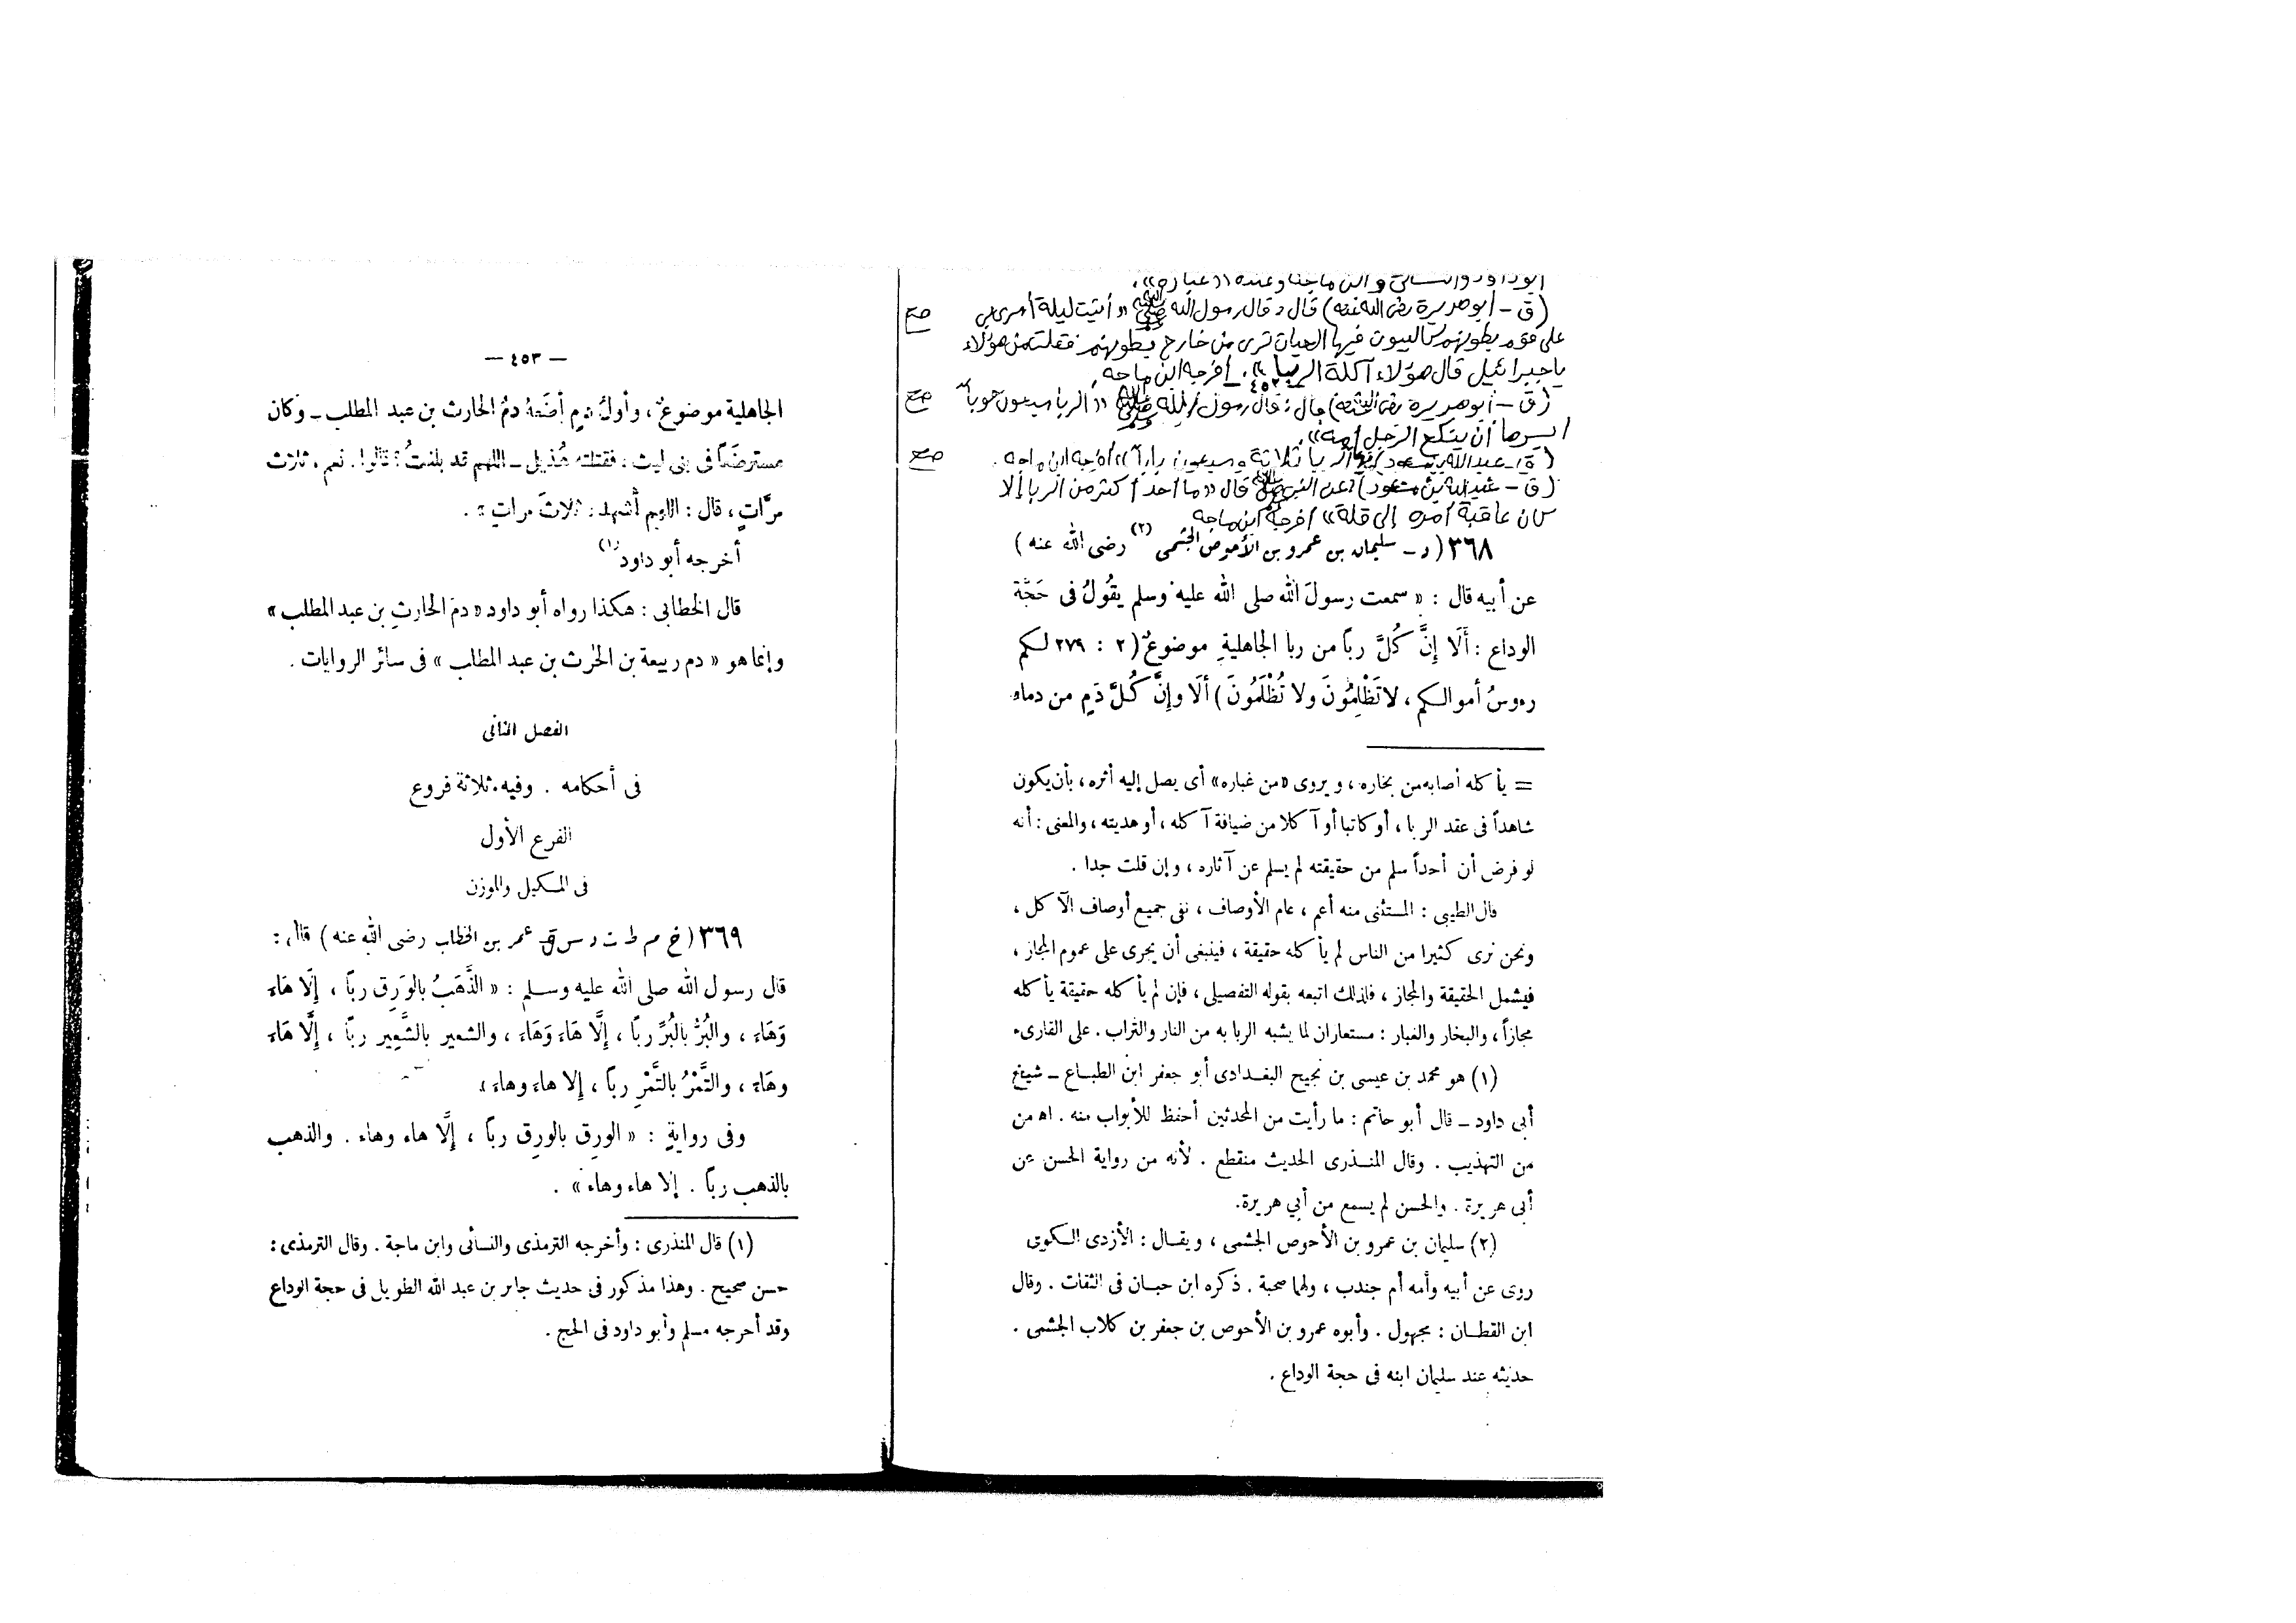 أبو داود والنسائي وابن ماجه وعنده «غباره».
(ق - أبو هريرة رضى الله عنه) قال: قال رسول الله ﷺ «أتيت ليلة أسرى بى
على قوم بطونهم كالبيوت فيها الحيات ترى من خارج بطونهم فقلت من هؤلاء
يا جبرائيل قال هؤلاء آكلة الربا». أخرجه ابن ماجه.
صح
(ق - أبو هريرة رضى الله عنه) قال: قال رسول الله ﷺ «الربا سبعون حوباً
أيسرها أن ينكح الرجل أمه».
صح
(ق - عبد الله بن مسعود) الربا ثلاثة وسبعون باباً» أخرجه ابن ماجه.
صح
(ق - عبد الله بن مسعود) عن النبى ﷺ قال «ما أحد أكثر من الربا إلا
كان عاقبة أمره إلى قلة» أخرجه ابن ماجه
٣٦٨ (د - سليمان بن عمرو بن الأحوص الجشمى (٢) رضى الله عنه)
عن أبيه قال : «سمعت رسولَ الله صلى الله عليه وسلم يقُولُ فى حَجَّة
الوداع : أَلَا إِنَّ كُلَّ رباً من ربا الجاهليةِ موضوعٌ (٢ : ٢٧٩ لكم
رءوسُ أموالكم ، لا تَظْلِمُونَ ولا تُظْلَمُونَ) ألَا وإِنَّ كُلَّ دَمٍ من دماء
= يأكله أصابه من بخاره ، ويروى «من غباره» أى يصل إليه أثره ، بأن يكون
شاهداً فى عقد الربا ، أو كاتبا أو آكلا من ضيافة آكله ، أو هديته ، والمعنى : أنه
لو فرض أن أحداً سلم من حقيقته لم يسلم عن آثاره ، وإن قلت جدا .
قال الطيبى : المستثنى منه أعم ، عام الأوصاف ، نفى جميع أوصاف الآكل ،
ونحن نرى كثيرا من الناس لم يأكله حقيقة ، فينبغى أن يجرى على عموم المجاز ،
فيشمل الحقيقة والمجاز ، فلذلك اتبعه بقوله التفصيلى ، فإن لم يأكله حقيقة يأكله
مجازاً ، والبخار والغبار : مستعاران لما يشبه الربا به من النار والتراب . على القارىء
(١) هو محمد بن عيسى بن نجيح البغدادى أبو جعفر ابن الطباع - شيخ
أبى داود - قال أبو حاتم : ما رأيت من المحدثين أحفظ للأبواب منه . اه من
من التهذيب . وقال المنذرى الحديث منقطع . لأنه من رواية الحسن عن
أبى هريرة . والحسن لم يسمع من أبي هريرة.
(٢) سليمان بن عمرو بن الأحوص الجشمى ، ويقال : الأزدى الكوفى
روى عن أبيه وأمه أم جندب ، ولهما صحبة . ذكره ابن حبان فى الثقات . وقال
ابن القطان : مجهول . وأبوه عمرو بن الأحوص بن جعفر بن كلاب الجشمى .
حديثه عند سليمان ابنه فى حجة الوداع .
— ٤٥٣ —
الجاهلية موضوعٌ ، وأولُ دمٍ أضَعهُ دمُ الحارث بن عبد المطلب - وكان
مسترضَعاً فى بنى ليث ، فقتلته هُذَيل - اللهم قد بلغتُ ؟ قالوا . نعم ، ثلاث
مرَّاتٍ ، قال : اللهم أشهد ، ثلاثَ مراتٍ» .
أخرجه أبو داود (١)
قال الخطابى : هكذا رواه أبو داود «دمَ الحارثِ بن عبد المطلب»
وإنما هو «دم ربيعة بن الحرث بن عبد المطلب» فى سائر الروايات .
الفصل الثانى
فى أحكامه . وفيه ثلاثة فروع
الفرع الأول
فى المكيل والموزن
٣٦٩ (خ م ط ت د س ق عمر بن الخطاب رضى الله عنه) قال :
قال رسول الله صلى الله عليه وسلم : «الذَّهَبُ بالوَرِق ربًا ، إِلَّا هَاءَ
وَهَاءَ ، والبُرُّ بالبُرِّ ربًا ، إِلَّا هَاءَ وَهَاءَ ، والشعير بالشَّعِير ربًا ، إِلَّا هَاءَ
وهَاءَ ، والتَّمْرُ بالتَّمْرِ ربًا ، إِلا هاءَ وهاءَ»
وفى روايةٍ : «الورِق بالورِق ربًا ، إِلَّا هاء وهاء . والذهب
بالذهب ربًا . إلا هاء وهاء» .
(١) قال المنذرى : وأخرجه الترمذى والنسائى وابن ماجة . وقال الترمذى :
حسن صحيح . وهذا مذكور فى حديث جابر بن عبد الله الطويل فى حجة الوداع
وقد أخرجه مسلم وأبو داود فى الحج .